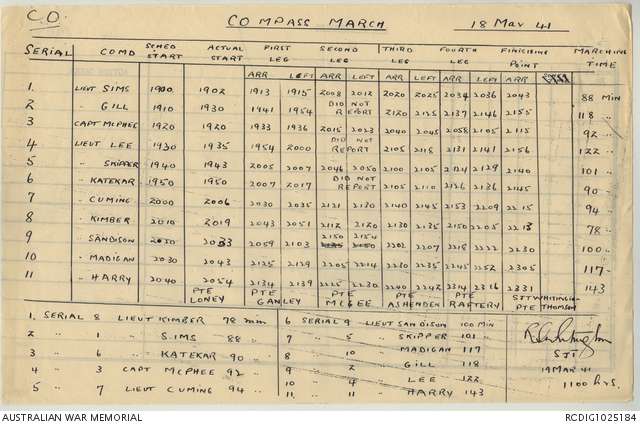 C.O.
COMPASS MARCH
18 Mar 41
SERIAL COMD SCHED START ACTUAL START FIRST LEG SECOND LEG THIRD LEG FOURTH LEG FINISHING POINT MARCHING TIME
ARR LEFT ARR LEFT ARR LEFT ARR LEFT ARR
1. LIEUT SIMS 1900 1902 1913 1915 2008 2012 2020 2025 2034 2036 2043 88 MIN
2 " GILL 1910 1930 1941 1954 DID NOT REPORT 2120 2125 2137 2146 2155 118 "
3 CAPT MCPHEE 1920 1920 1933 1936 2015 2023 2040 2045 2058 2105 2115 92 "
4 LIEUT LEE 1930 1935 1954 2000 DID NOT REPORT 2105 2118 2131 2141 2156 122 "
5 " SKIPPER 1940 1943 2005 2007 2046 2050 2100 2105 2124 2129 2140 101 "
6 " KATEKAR 1950 1950 2007 2017 DID NOT REPORT 2105 2110 2126 2136 2145 90 "
7 " CUMING 2000 2006 2030 2035 2121 2130 2140 2145 2153 2209 2215 94 "
8 " KIMBER 2010 2019 2043 2051 2112 2120 2130 2135 2150 2205 2213 78 "
9 " SANDISON 2020 2033 2059 2103 2150 2154 2202 2207 2218 2222 2230 100 "
10 " MADIGAN 2030 2043 2125 2129 2205 2214 2230 2235 2245 2252 2305 117 "
11 " HARRY 2040 2054 2134 2139 2225 2230 2240 2242 2314 2316 2331 143
PTE LONEY PTE GANLEY PTE MCGEE PTE ASHENDEN PTE RAFTERY SJT WHITINGTON PTE THOMSON
1. SERIAL 8 LIEUT KIMBER 78 min
2 " 1 " SIMS 88 "
3 " 6 " KATEKAR 90 "
4 " 3 CAPT MCPHEE 92 "
5 " 7 LIEUT CUMING 94 "
6 SERIAL 9 LIEUT SANDISON 100 MIN
7 " 5 " SKIPPER 101 "
8 " 10 " MADIGAN 117
9 " 2 " GILL 118
10 " 4 " LEE 122
11 " 11 " HARRY 143
SJT
19 MAR 41
1100 hrs.
AUSTRALIAN WAR MEMORIAL
RCDIG1025184